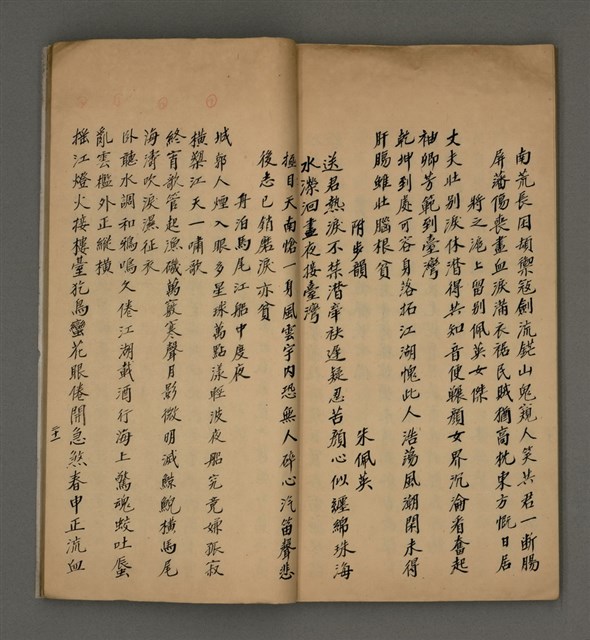 南荒長困頻禦寇劍流鋩山鬼窺人笑共君一斷腸
屏藩傷喪盡血淚滿衣裾民賊猶高枕東方慨日居
將之滬上留別佩英女傑
丈夫壯別淚休潸得共知音便輾顏女界沉淪看奮起
袖卿芳範到臺灣
乾坤到處可容身落拓江湖愧此人浩蕩風潮閑未得
肝腸雖壯腦根貧
附步韻
朱佩英
送君熱淚不禁潸牽袂遲疑忍苦顏心似纏綿珠海
水瀠洄晝夜接臺灣
換日天南愴一身風雲宇內恐無人碎心汽笛聲悲
後志已銷磨淚亦貧
舟泊馬尾江船中度夜
城郭人煙入眼多星球萬點漾輕波夜船究竟嫌孤寂
橫槊江天一嘯歌
終宵歌管起漁磯萬竅寒聲月影微明滅鯨鯢橫馬尾
海濤吹淚濕征衣
臥聽水調和鴉鳴久倦江湖載酒行海上驚魂蛟吐蜃
亂雲檻外正縱橫
搖江燈火接樓臺犵鳥蠻花眼倦開急煞春申正流血